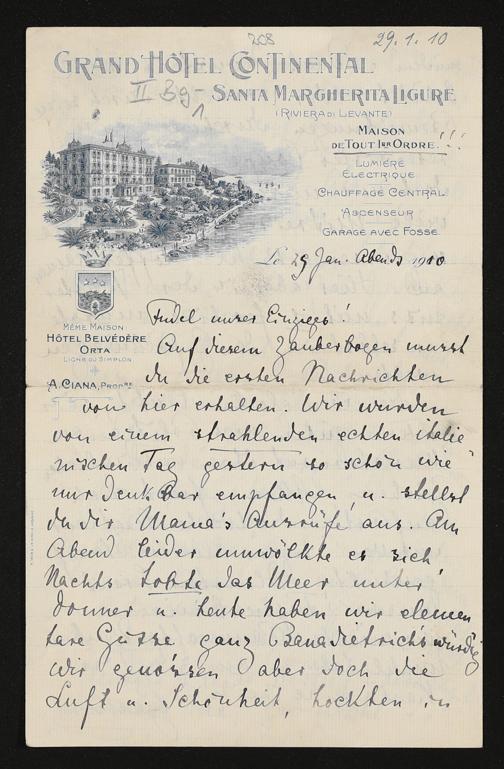 208
29.1.10
GRAND HÔTEL CONTINENTAL
II Bg-1
SANTA MARGHERITA LIGURE
(RIVIERA DI LEVANTE)
MAISON
DE TOUT 1ER ORDRE. !!!
LUMIÈRE
ÉLECTRIQUE
CHAUFFAGE CENTRAL
ASCENSEUR
GARAGE AVEC FOSSE
Le 29 Jan. Abends 1910
MÊME MAISON
HÔTEL BELVÉDÈRE
ORTA
LIGNE DU SIMPLON
A. CIANA, PROPRE
Fudel unser Einziges!
Auf diesem Zauberbogen musst
du die ersten Nachrichten
von hier erhalten. Wir wurden
von einem strahlenden echten italie
nischen Tag gestern so schön wie
nur denkbar empfangen, u. stellst
du dir Mama's Ausrufe aus. Am
Abend leider umwölkte es sich,
Nachts tobte das Meer unter
Donner u. heute haben wir elemen
tare Güsse ganz würdig
wir genossen aber doch die
Luft u. Schönheit, hockten in